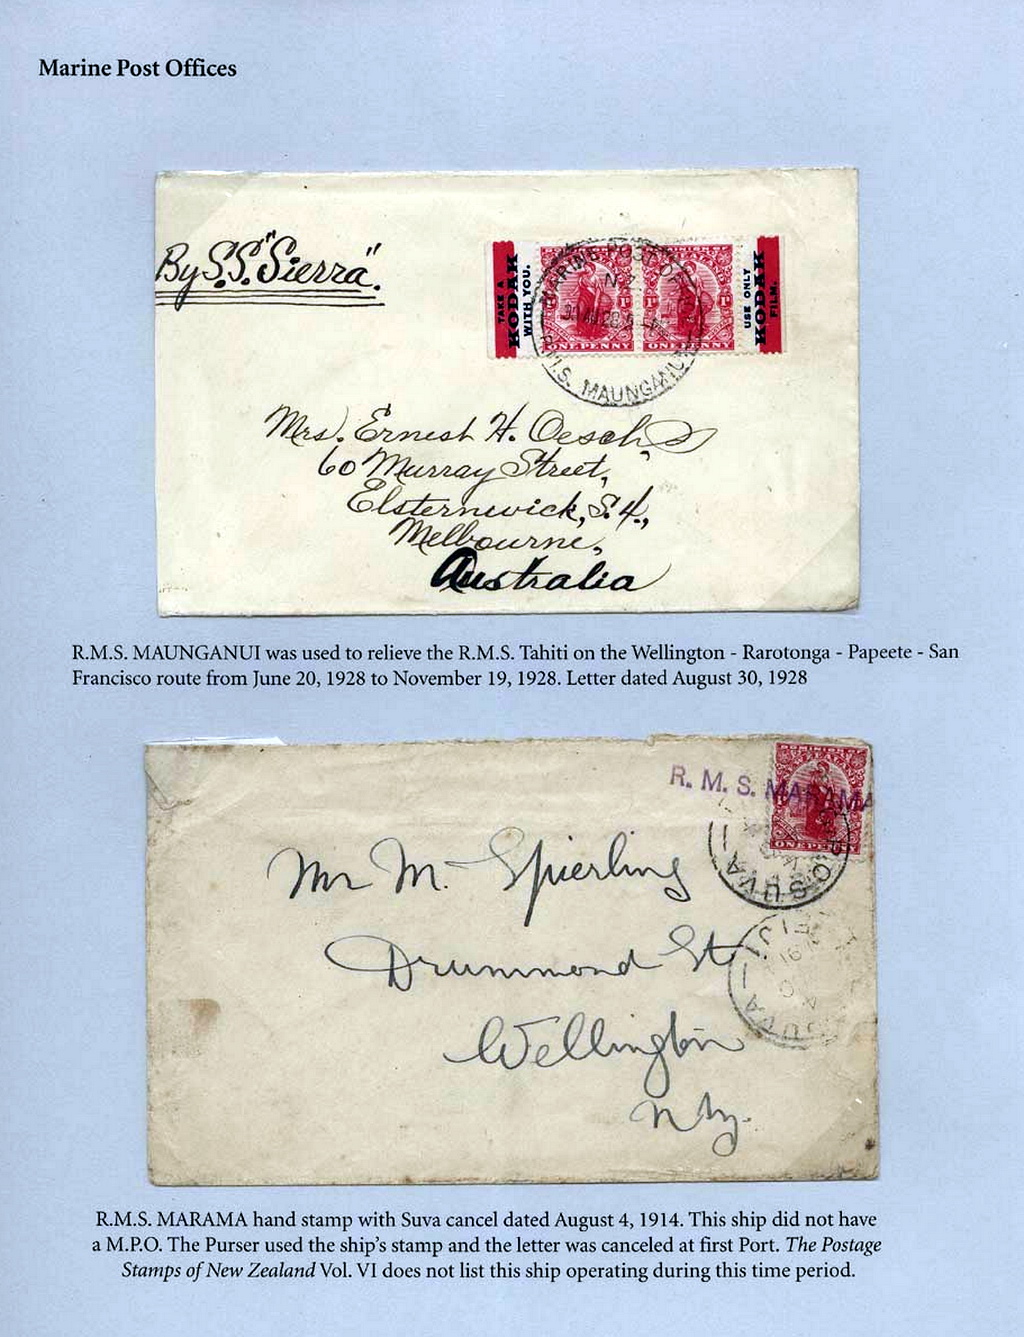 Marine Post Offices
By S.S. "Sierra".
TAKE A
KODAK
WITH YOU.
DOMINION OF
1D 1D
ONE PENNY ONE PENNY
USE ONLY
KODAK
FILM.
MARINE POST OFFICE
N.Z.
R.M.S. MAUNGANUI
Mrs. Ernest H. Oesch,
60 Murray Street,
Elsternwick, S.4,
Melbourne,
Australia
R.M.S. MAUNGANUI was used to relieve the R.M.S. Tahiti on the Wellington - Rarotonga - Papeete - San
Francisco route from June 20, 1928 to November 19, 1928. Letter dated August 30, 1928
R. M. S. MARAMA
DOMINION OF
ZEALAND
ONE PENNY
SUVA
FIJI
SUVA
Mr M. Spierling
Drummond St
Wellington
N Zy.
R.M.S. MARAMA hand stamp with Suva cancel dated August 4, 1914. This ship did not have
a M.P.O. The Purser used the ship's stamp and the letter was canceled at first Port. The Postage
Stamps of New Zealand Vol. VI does not list this ship operating during this time period.